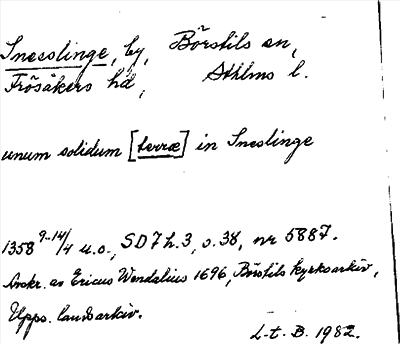 Snesslinge, by, Börstils sn,
Frösåkers hd, Sthlms l.
unum solidum [terræ] in Sneslinge
1358 9-14/4 u.o., SD 7 h. 3, s. 38, nr 5887.
Avskr. av Ericus Wendalius 1696, Börstils kyrkoarkiv,
Upps. landsarkiv.
L.t.B. 1982.